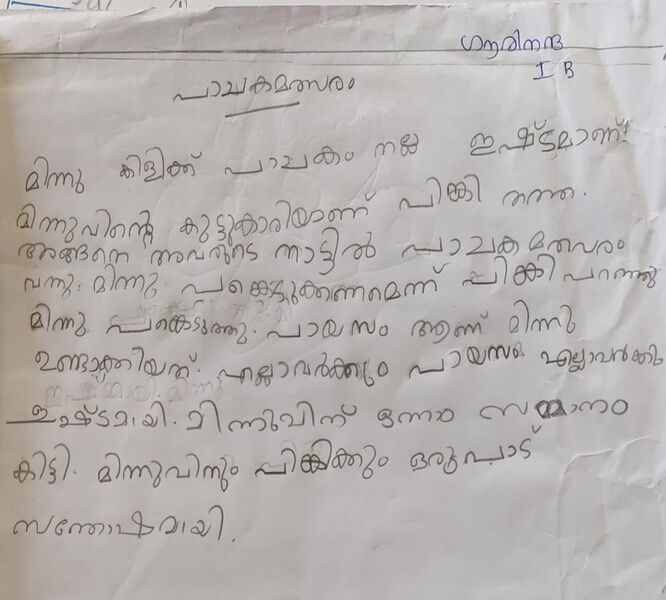 ഗൗരിനന്ദ
I B
പാചകമത്സരം
മിന്നു കിളിക്ക് പാചകം നല്ല ഇഷ്ടമാണ്!
മിന്നുവിന്റെ കൂട്ടുകാരിയാണ് പിങ്കി തത്ത.
അങ്ങനെ അവരുടെ നാട്ടിൽ പാചക മത്സരം
വന്നു. മിന്നു പങ്കെടുക്കണമെന്ന് പിങ്കി പറഞ്ഞു
മിന്നു പങ്കെടുത്തു. പായസം ആണ് മിന്നു
ഉണ്ടാക്കിയത്. എല്ലാവർക്കും പായസം എല്ലാവർക്കും
ഇഷ്ടമായി. മിന്നുവിന് ഒന്നാം സമ്മാനം
കിട്ടി. മിന്നുവിനും പിങ്കിക്കും ഒരുപാട്
സന്തോഷമായി.